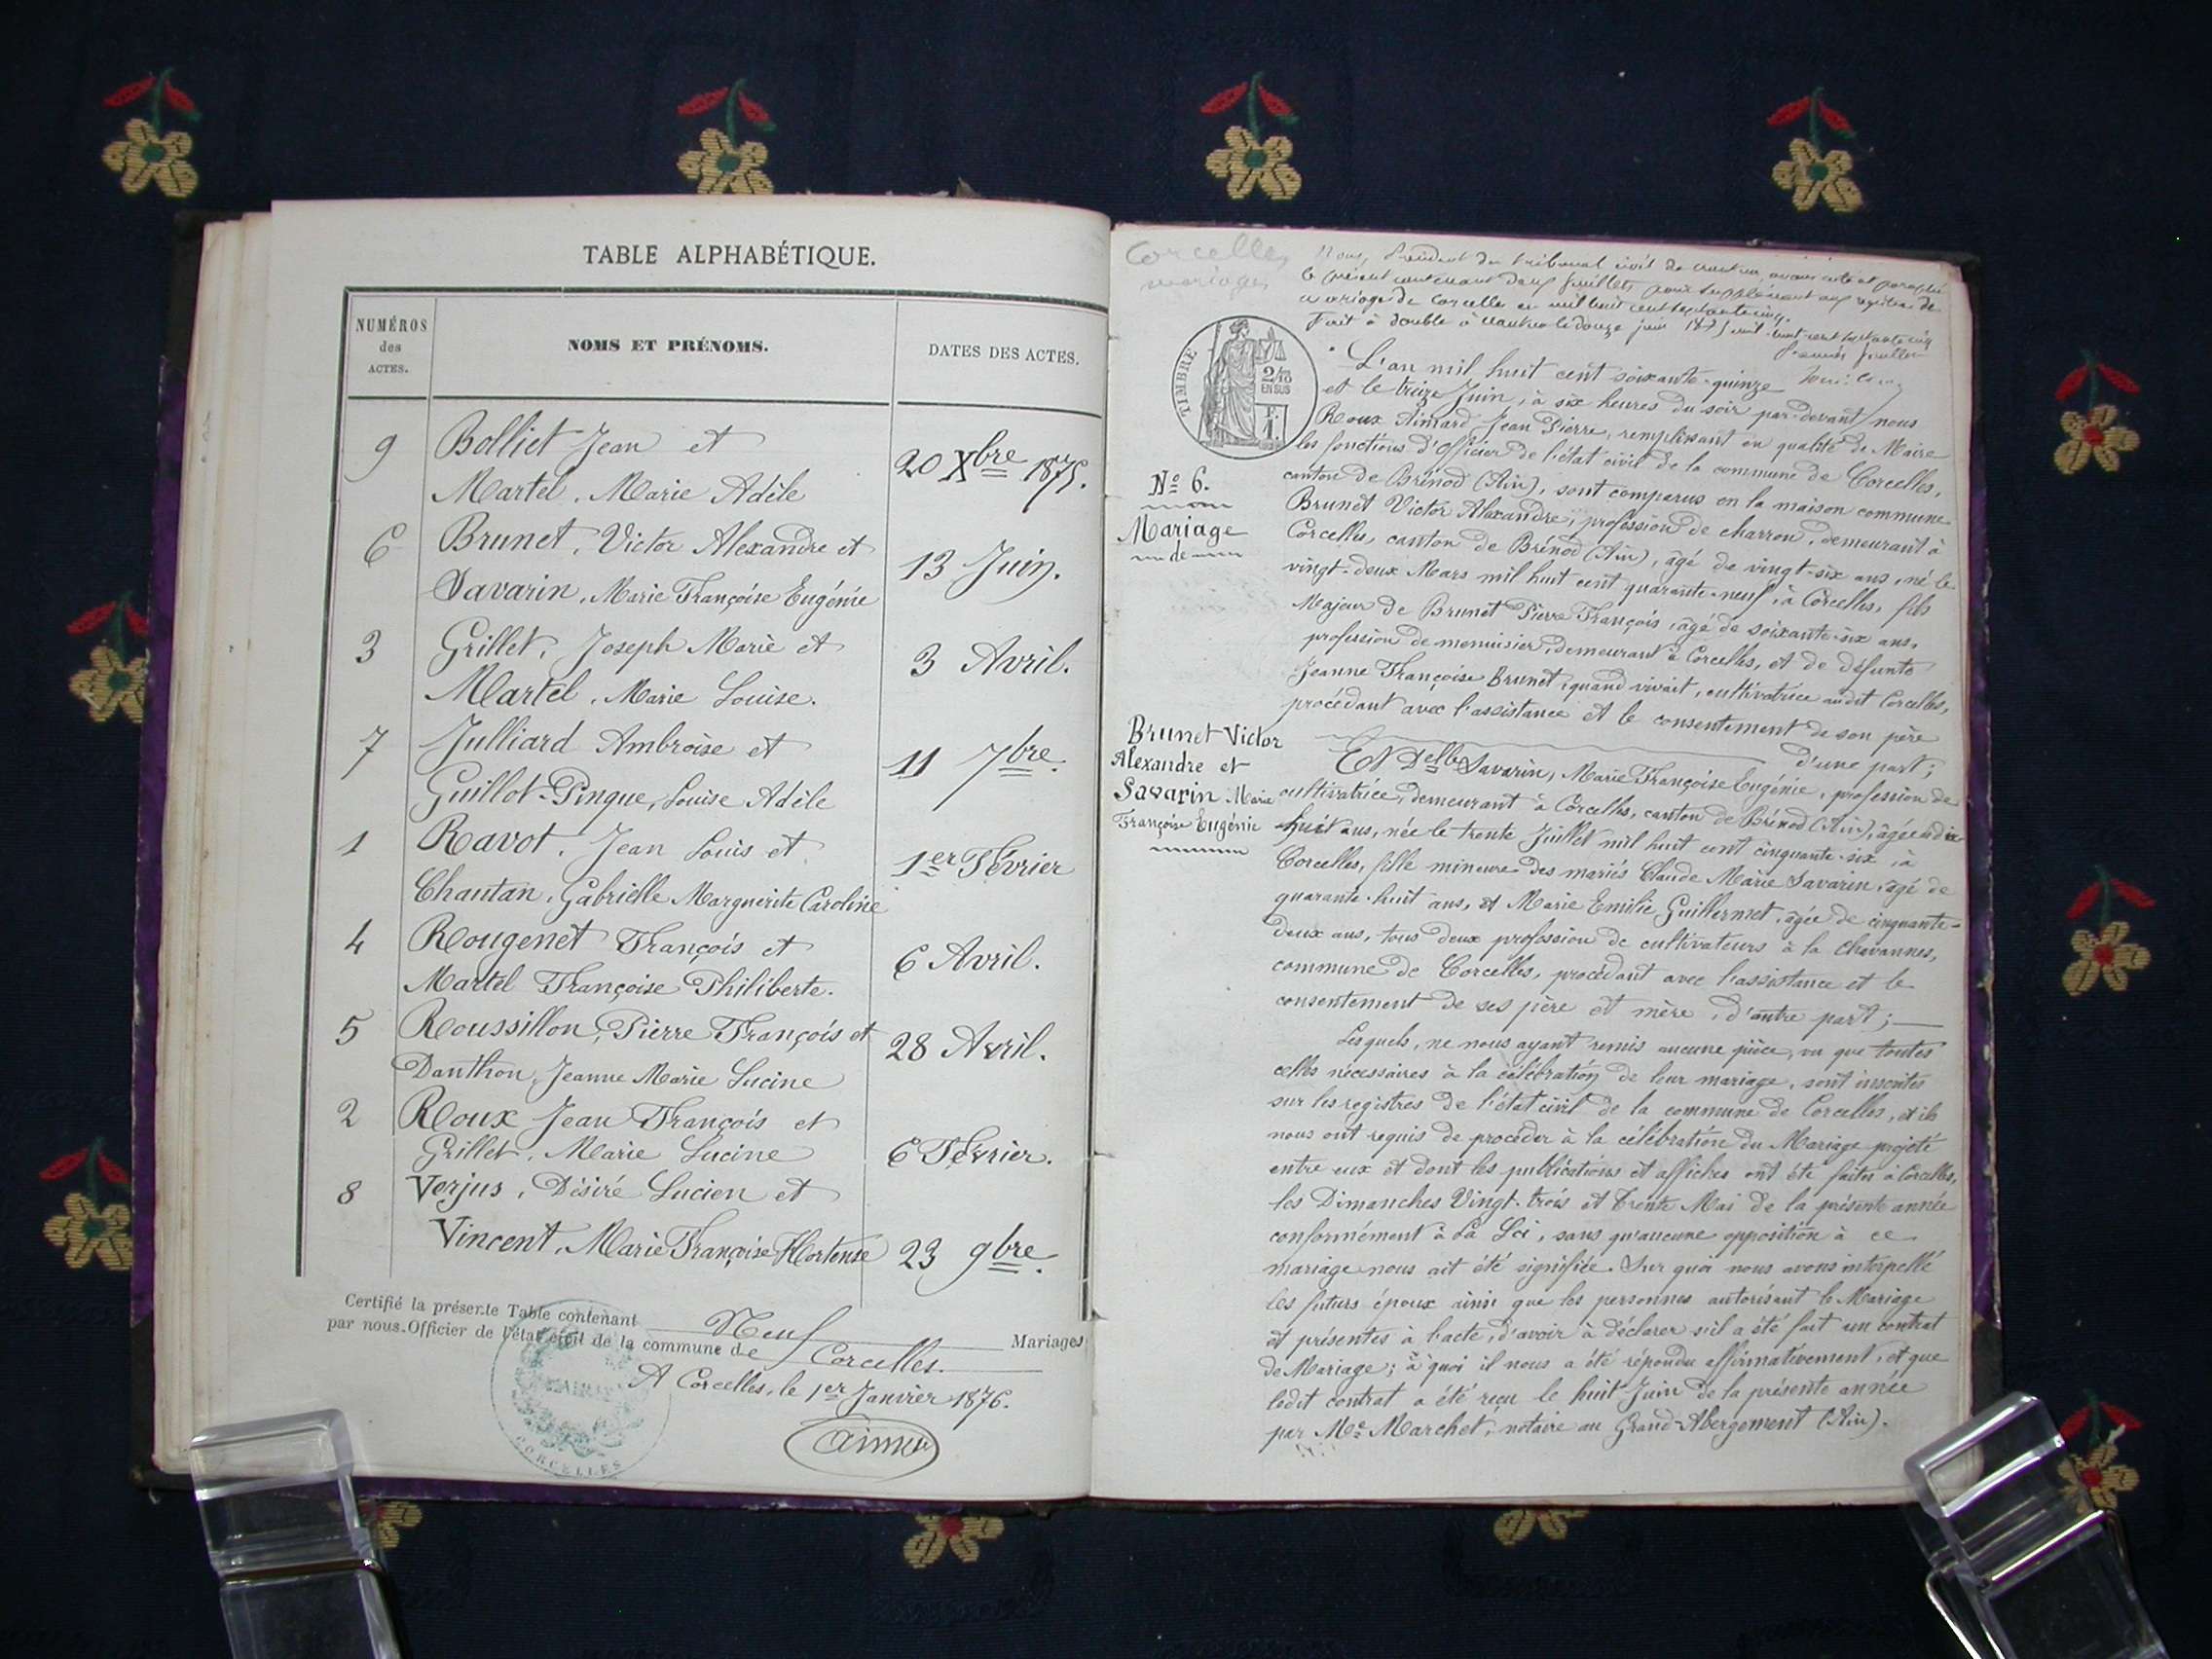 TABLE ALPHABÉTIQUE.
NUMÉROS
des
ACTES.
NOMS ET PRÉNOMS.
DATES DES ACTES.
9 Bolliet Jean et
Martel, Marie Adèle
20 Xbre 1875.
6 Brunet, Victor Alexandre et
Savarin, Marie Françoise Eugénie
13 Juin.
3 Grillet, Joseph Marie et
Martel, Marie Louise.
3 Avril.
7 Julliard Ambroise et
Guillot-Pingue, Louise Adèle
11 7bre.
1 Ravot, Jean Louis et
Chautan, Gabrielle Marguerite Caroline
1er Février
4 Rougenet François et
Martel Françoise Philiberte.
6 Avril.
5 Roussillon, Pierre François et
Danthon, Jeanne Marie Lucine
28 Avril.
2 Roux Jean François et
Grillet, Marie Lucine
6 Février.
8 Verjus, Désiré Lucien et
Vincent, Marie Françoise Hortense
23 9bre.
Certifié la présente Table contenant Neuf Mariages
par nous Officier de l'état civil de la commune de Corcelles.
A Corcelles, le 1er Janvier 1876.
CORCELLES
Corcelles
mariages
Nous, Président du tribunal civil de Nantua, avons coté et paraphé
le présent contenant deux feuillets, pour supplément aux registres de
mariage de Corcelles en mil huit cent septante cinq.
Fait à double à Nantua le douze juin 1875 mil huit cent septante cinq
TIMBRE
2/10
EN SUS
F.
1
L'an mil huit cent soixante-quinze
et le treize Juin, à six heures du soir par-devant nous
Roux Aimard Jean Pierre, remplissant en qualité de Maire
les fonctions d'Officier de l'état civil de la commune de Corcelles,
canton de Brénod (Ain), sont comparus en la maison commune
Brunet Victor Alexandre, profession de charron, demeurant à
Corcelles, canton de Brénod (Ain), âgé de vingt-six ans, né le
vingt-deux Mars mil huit cent quarante-neuf, à Corcelles, fils
Majeur de Brunet Pierre François, âgé de soixante-six ans,
profession de menuisier, demeurant à Corcelles, et de défunte
Jeanne Françoise Brunet, quand vivait, cultivatrice audit Corcelles,
procédant avec l'assistance et le consentement de son père
d'une part;
No 6.
Mariage
de
Brunet Victor
Alexandre et
Savarin Marie
Françoise Eugénie
Et Delle Savarin, Marie Françoise Eugénie, profession de
cultivatrice, demeurant à Corcelles, canton de Brénod (Ain), âgée de dix
huit ans, née le trente Juillet mil huit cent cinquante-six, à
Corcelles, fille mineure des mariés Claude Marie Savarin, âgé de
quarante-huit ans, et Marie Emilie Guillermet, âgée de cinquante-
deux ans, tous deux profession de cultivateurs à la Chavannes,
commune de Corcelles, procédant avec l'assistance et le
consentement de ses père et mère, d'autre part;
Lesquels, ne nous ayant remis aucune pièce, vu que toutes
celles nécessaires à la célébration de leur mariage, sont inscrites
sur les registres de l'état civil de la commune de Corcelles, et ils
nous ont requis de procéder à la célébration du Mariage projeté
entre eux et dont les publications et affiches ont été faites à Corcelles,
les Dimanches Vingt-trois et trente Mai de la présente année
conformément à La Loi, sans qu'aucune opposition à ce
mariage nous ait été signifiée. Sur quoi nous avons interpellé
les futurs époux ainsi que les personnes autorisant le Mariage
et présentes à l'acte, d'avoir à déclarer s'il a été fait un contrat
de Mariage; à quoi il nous a été répondu affirmativement, et que
ledit contrat a été reçu le huit Juin de la présente année
par Me Marchet, notaire au Grand-Abergement (Ain).